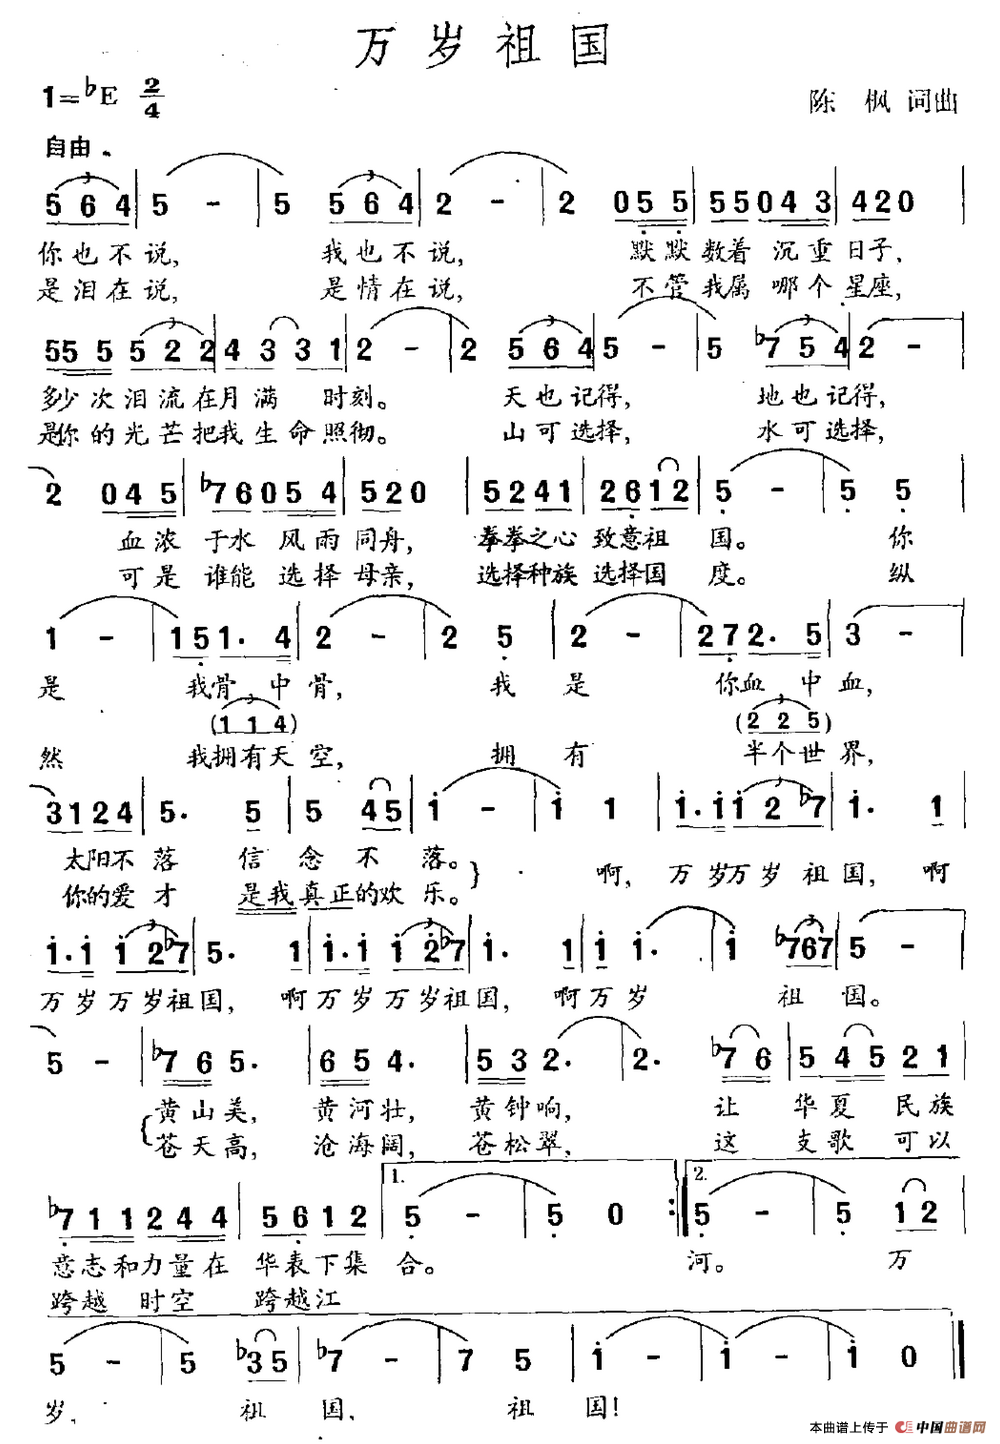 万岁祖国
1=♭E 2/4
陈 枫 词曲
自由
5 6 4 | 5 - | 5 5 6 4 | 2 - | 2 0 5 5 | 5 5 0 4 3 | 4 2 0 |
你也不说, 我也不说, 默默数着 沉重日子,
是泪在说, 是情在说, 不管我属 哪个星座,
5 5 5 5 5 2 2 | 4 3 3 1 | 2 - | 2 5 6 4 | 5 - | 5 ♭7 5 4 | 2 -
多少次泪流在月满 时刻。 天也记得, 地也记得,
是你的光芒把我生命照彻。 山可选择, 水可选择,
2 0 4 5 | ♭7 6 0 5 4 | 5 2 0 | 5 2 4 1 | 2 6 1 2 | 5 - | 5 5 |
血浓 于水 风雨同舟, 拳拳之心 致意祖 国。 你
可是 谁能 选择母亲, 选择种族 选择国 度。 纵
1 - | 1 5 1. 4 | 2 - | 2 5 | 2 - | 2 7 2. 5 | 3 -
是 我骨 中骨, 我是 你血中血,
(1 1 4) (2 2 5)
然 我拥有天空, 拥有 半个世界,
3 1 2 4 | 5. 5 | 5 4 5 | i - | i 1 | i. i i 2 ♭7 | i. 1 |
太阳不落 信念不落。 啊, 万岁万岁祖国, 啊
你的爱才 是我真正的欢乐。
i. i i 2 ♭7 | 5. 1 | i. i i 2 ♭7 | i. 1 | i i | i - | i ♭7 6 7 | 5 -
万岁万岁祖国, 啊万岁万岁祖国, 啊万岁 祖国。
5 - | ♭7 6 5. | 6 5 4. | 5 3 2. | 2. ♭7 6 | 5 4 5 2 1 |
黄山美, 黄河壮, 黄钟响, 让 华夏民族
苍天高, 沧海阔, 苍松翠, 这 支歌可以
1. 2.
♭7 1 1 2 4 4 | 5 6 1 2 | 5 - | 5 0 :| 5 - | 5 1 2 |
意志和力量在 华表下集 合。 河。 万
跨越 时空 跨越江
5 - | 5 ♭3 5 | ♭7 - | 7 5 | i - | i - | i 0 ‖
岁, 祖国, 祖国!
本曲谱上传于 中国曲谱网